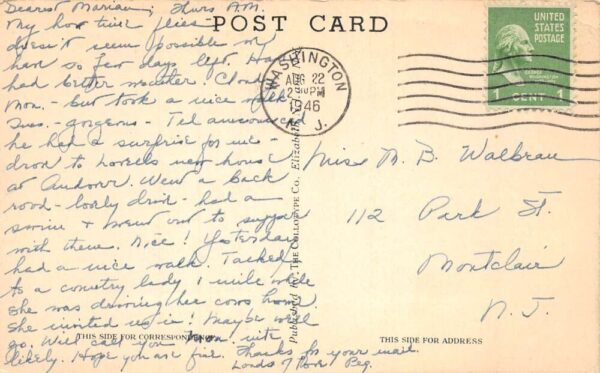 POST CARD
Dearest Marian; Thurs A.M.
My how time flies -
doesn't seem possible only
have so few days left. Have
had better weather. Cloudy
Mon. - but took a nice walk
Tues. - gorgeous - Ted announced
he had a surprise for me -
drove to Lovells new house
at Andover. Went a back
road - lovely drive - had a
swim & went out to supper
with them. Nice! Yesterday
had a nice walk. Talked
to a country lady 1 mile
She was driving her cows home.
She invited us in! Maybe we'll
go. Will call you Mon. nite
likely. Hope you are fine. Thanks for your mail.
Loads of love Peg.
THIS SIDE FOR CORRESPONDENCE
Published by THE COLLOTYPE CO. Elizabeth
WASHINGTON
AUG 22
2 PM
1946
N. J.
UNITED
STATES
POSTAGE
GEORGE WASHINGTON
1 CENT 1
Miss M. B. Walbrau
112 Park St.
Montclair
N. J.
THIS SIDE FOR ADDRESS